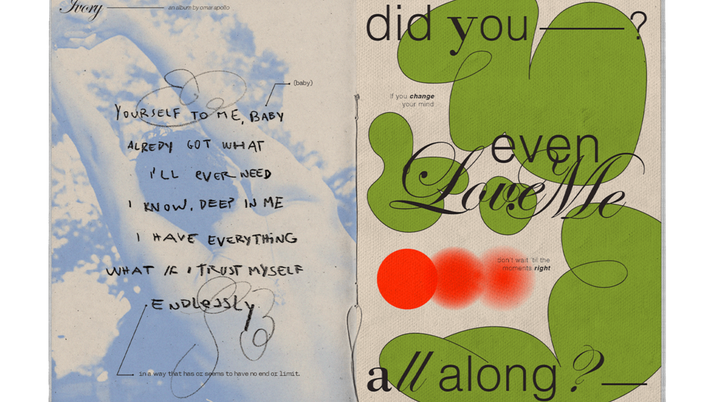 Ivory
an album by omar apollo
(baby)
YOURSELF TO ME, BABY
ALREDY GOT WHAT
I'LL EVER NEED
I KNOW, DEEP IN ME
I HAVE EVERYTHING
WHAT IF I TRUST MYSELF
ENDLESSLY
in a way that has or seems to have no end or limit.
did you ?
if you change
your mind
even
Love Me
don't wait 'til the
moments right
all along?